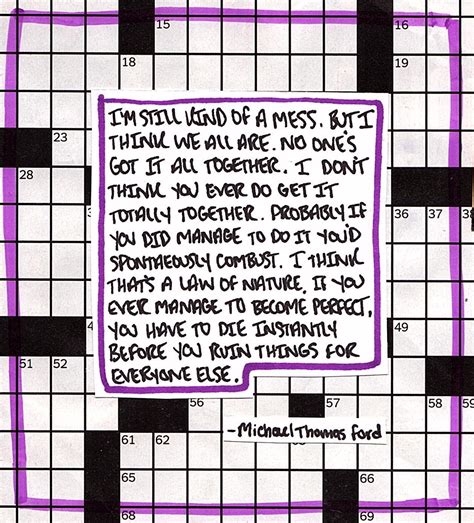 15
16
18
19
I'M STILL KIND OF A MESS. BUT I
THINK WE ALL ARE. NO ONE'S
GOT IT ALL TOGETHER. I DON'T
THINK YOU EVER DO GET IT
TOTALLY TOGETHER. PROBABLY IF
YOU DID MANAGE TO DO IT YOU'D
SPONTAEOUSLY COMBUST. I THINK
THAT'S A LAW OF NATURE. IF YOU
EVER MANAGE TO BECOME PERFECT,
YOU HAVE TO DIE INSTANTLY
BEFORE YOU RUIN THINGS FOR
EVERYONE ELSE.
23
28
36 37 38
49
51 52
57 58 59
-Michael Thomas Ford
61 62
65
66
68
69